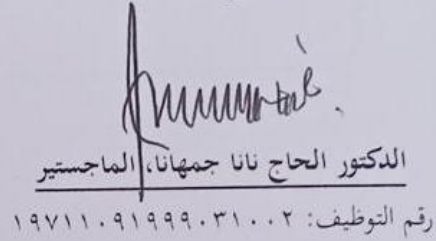 الدكتور الحاج نانا جمهانا، الماجستير
رقم التوظيف: ١٩٧١١٠٩١٩٩٩٠٣١٠٠٢